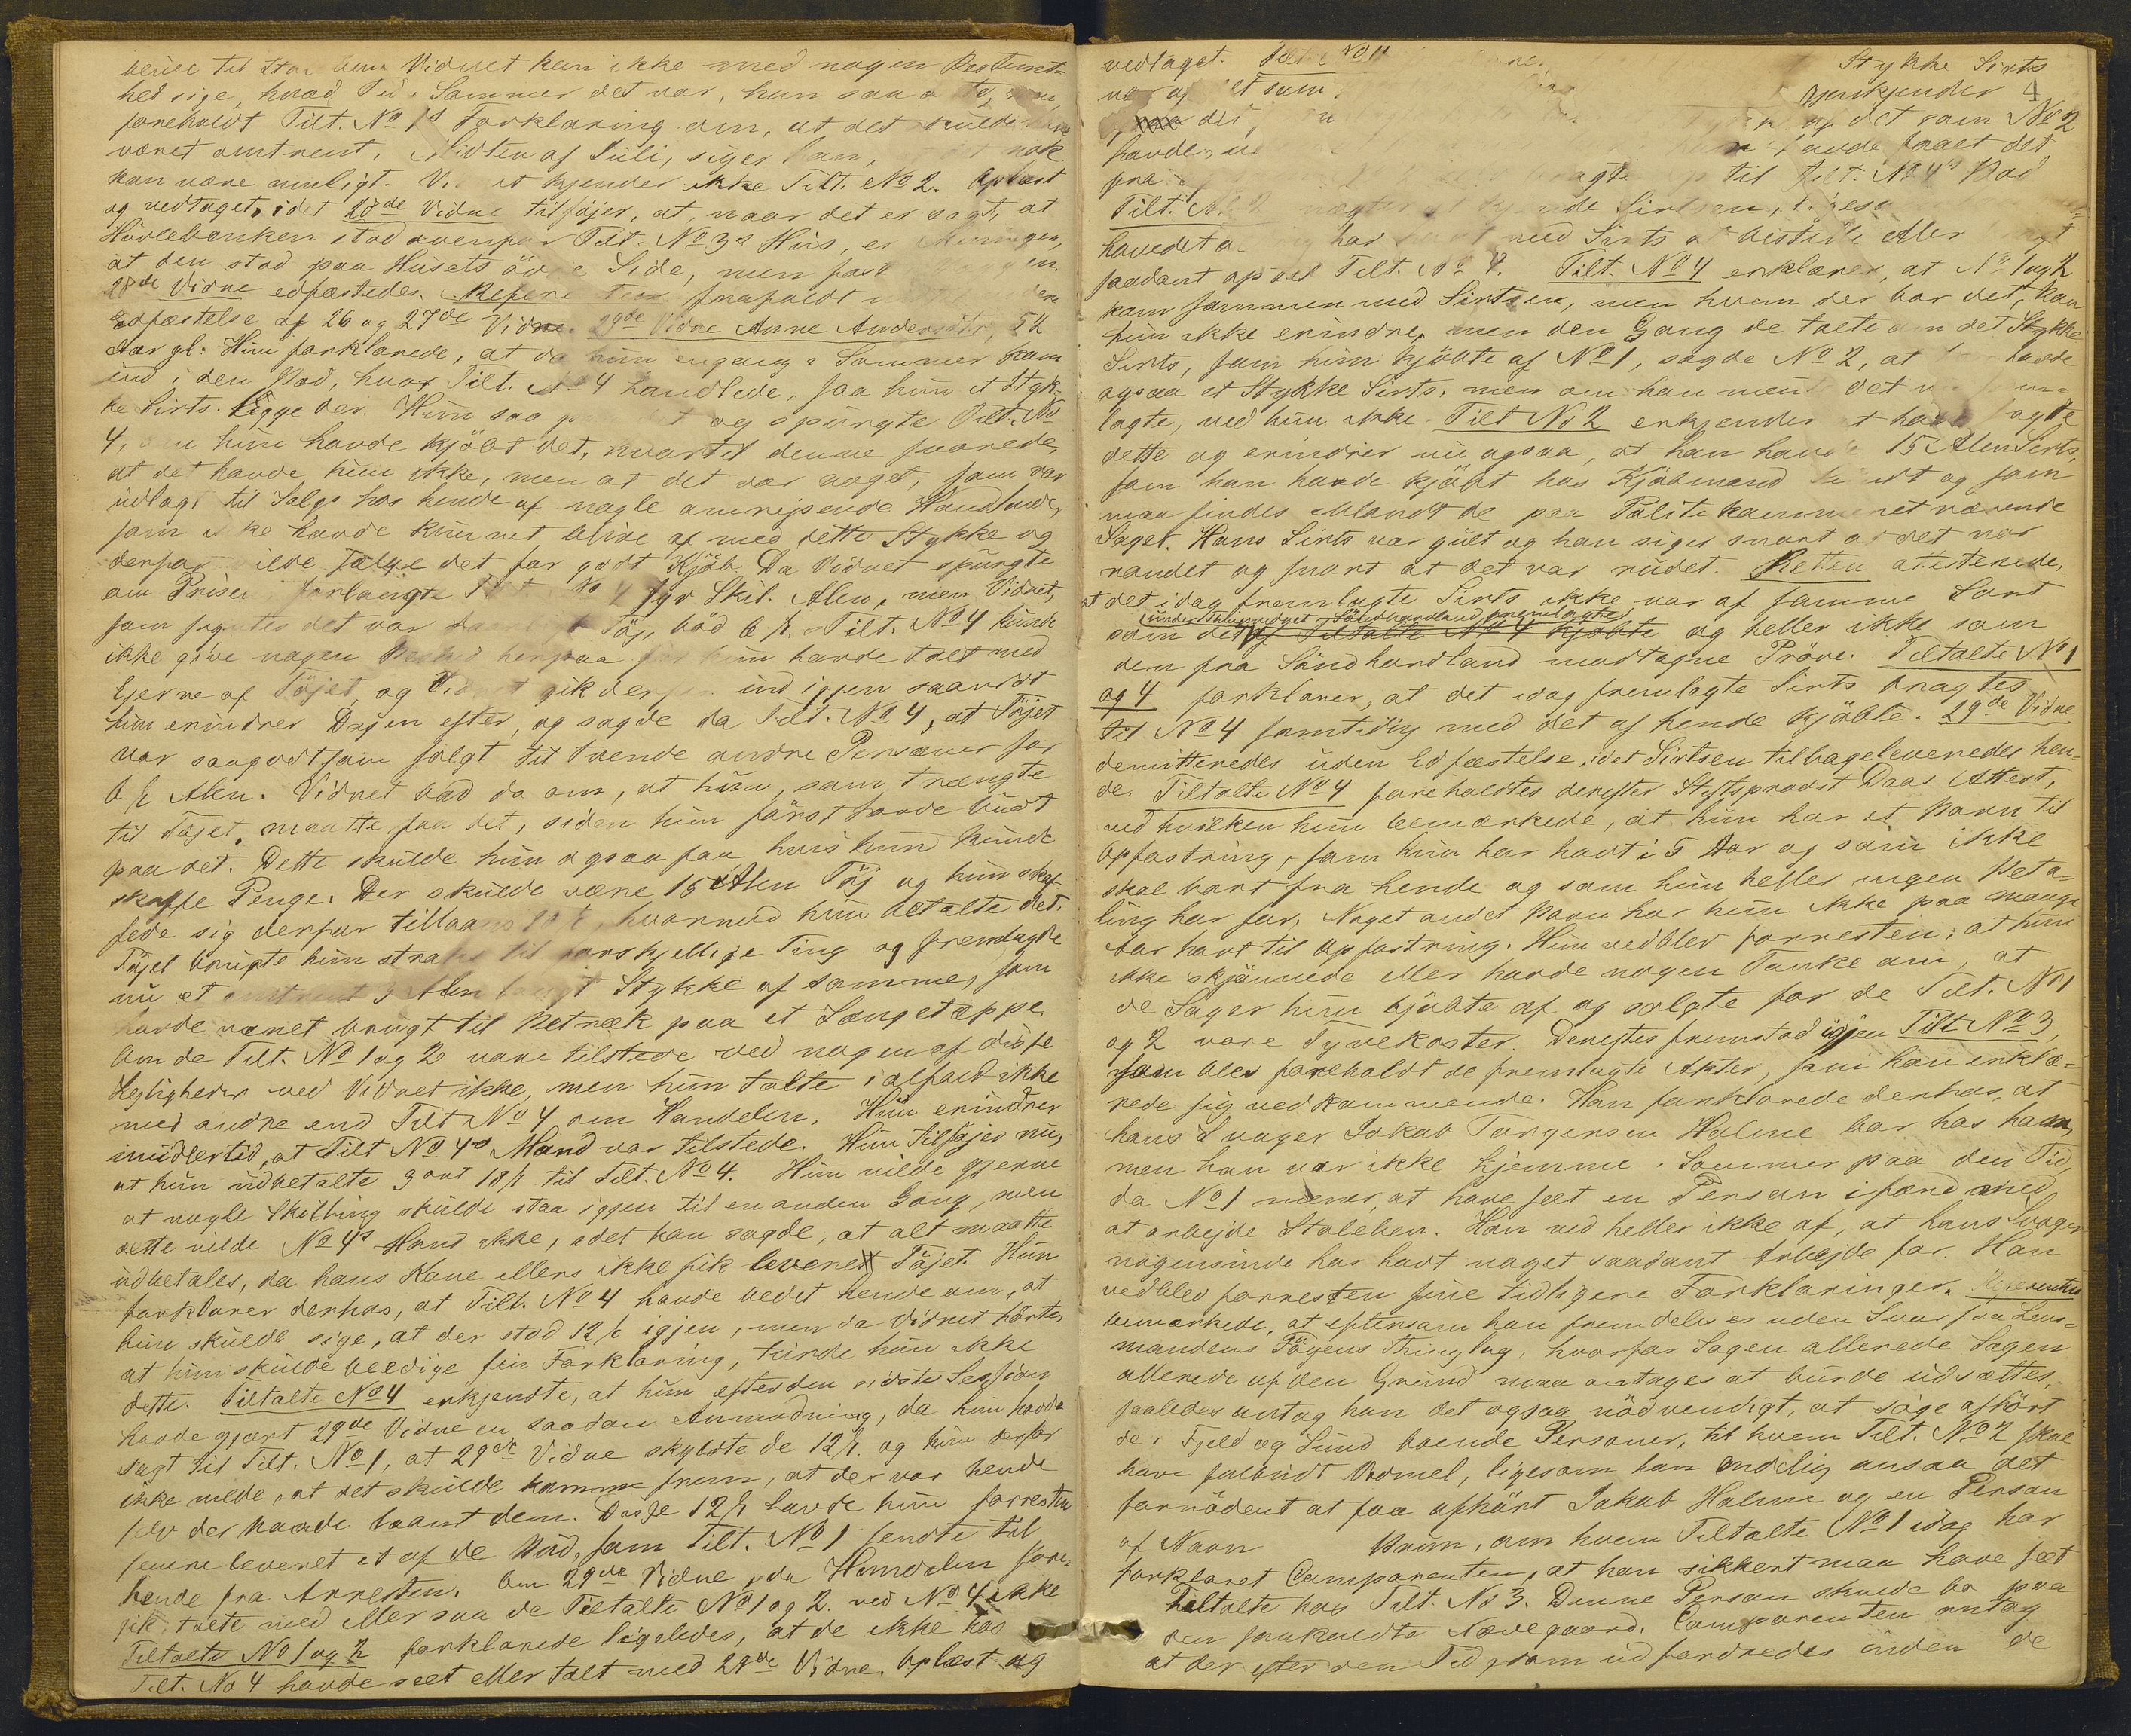 blive til Stol kom Vidnet kan ikke med nogen Bestemt-
hed sige, hvad Tid i Sommer det var, han saa
foreholdt Tilt. No 1s Forklaring om, at det skulde have
været omtrent, Midten af Juli, siger han, nok
kan være muligt. Vidnet kjender ikke Tilt. No 2. Oplæst
og vedtaget, idet 28de Vidne tilføjer, at, naar det er sagt, at
Høvlebænken stod ovenfor Tilt. No 3s Hus, er Meningen,
at den stod paa Husets øvre Side, men fast
28de Vidne edfæstedes. Referenten frafaldt
Edfæstelse af 26 og 27de Vidne. 29de Vidne Anne Andersdtr, 52
Aar gl. Hun forklarede, at da hun engang i Sommer kom
ind i den Bod, hvor Tilt. No 4 handlede, saa hun et Styk-
ke Sirts ligge der. Hun saa paa det og spurgte Tilt. No
4, om hun havde kjøbt det, hvortil denne svarede,
at det havde hun ikke, men at det var noget, som var
udlagt til Salgs hos hende af nogle omrejsende Handlende,
som ikke havde kunnet blive af med dette Stykke og
derfor vilde sælge det for godt Kjøb. Da Vidnet spurgte
om Prisen forlangte Tilt. No 4 syv Skil. Alen, men Vidnet,
som syntes det var daarligt Tøj, bød 6 ß. Tilt. No 4 kunde
ikke give nogen Besked herpaa før hun havde talt med
Ejerne af Tøjet, og Vidnet gik derfor ind igjen saavidt
hun erindrer Dagen efter, og sagde da Tilt. No 4, at Tøjet
var saagodtsom solgt til tvende andre Personer for
6 ß Alen. Vidnet bad da om, at hun, som trængte
til Tøjet, maatte faa det, siden hun først havde budt
paa det. Dette skulde hun ogsaa faa, hvis hun kunde
skaffe Penge. Der skulde være 15 Alen Tøj og hun skaf-
fede sig derfor tillaans hvormed hun betalte det.
Tøjet brugte hun straks til forskjellige Ting og fremlagde
nu et omtrent 3 Alen langt Stykke af samme, som
havde været brugt til Betræk paa et Sengetæppe.
Om de Tilt. No 1 og 2 vare tilstede ved nogen af disse
Lejligheder ved Vidnet ikke, men hun talte ialfald ikke
med andre end Tilt No 4 om Handelen. Hun erindrer
imidlertid, at Tilt No 4s Mand var tilstede. Hun tilføjer nu,
at hun udbetalte 3 ort 18 ß til Tilt. No 4. Hun vilde gjerne
at nogle Skilling skulde staa igjen til en anden Gang, men
dette vilde No 4s Mand ikke, idet han sagde, at alt maatte
udbetales, da hans Kone ellers ikke fik leveret Tøjet. Hun
forklarer derhos, at Tilt. No 4 havde bedet hende om, at
hun skulde sige, at der stod 12 ß igjen, men da Vidnet hørte,
at hun skulde beedige sin Forklaring, turde hun ikke
dette. Tiltalte No 4 erkjendte, at hun efter den sidste Session
havde gjort 29de Vidne en saadan Anmodning, da hun havde
sagt til Tilt. No 1, at 29de Vidne skyldte de 12 ß. og hun derfor
ikke vilde, at det skulde komme frem, at der var hende
selv der havde laant dem. Disse 12 ß havde hun forresten
senere leveret et af de Bud, som Tilt. No 1 sendte til
hende fra Arresten. Om 29de Vidne, da Handelen fore-
gik, talte med eller saa de Tiltalte No 1 og 2. ved No 4 ikke
Tiltalte No 1 og 2 forklarede ligeledes, at de ikke hos
Tilt. No 4 havde seet eller talt med 29de Vidne. Oplæst og
vedtaget. Tilt No 4 Stykke Sirts
være det som gjenkjender
det, af det som No 2
havde havde faaet det
fra bragte til Tilt. No 4s Bod
Tilt. No 2 nægter at kjende Sirtsen, ligesom
hovedet har havt med Sirts at bestille eller bragt
saadant op til Tilt. No 4. Tilt. No 4 erklærer, at No 1 og 2
kom sammen med Sirtsen, men hvem der bar det, kan
hun ikke erindre, men den Gang de talte om det Stykke
Sirts, som hun kjøbte af No 1, sagde No 2, at han havde
ogsaa et Stykke Sirts, men om han mente det
lagte, ved hun ikke. Tilt No 2 erkjender at have sagt
dette og erindrer nu ogsaa, at han havde 15 Alen Sirts,
som han havde kjøbt hos Kjøbmand og som
maa findes blandt de paa Politikammeret værende
Sager. Hans Sirts var gult og han siger snart at det var
randet og snart at det var rudet. Retten attesterede,
at det idag fremlagte Sirts ikke var af samme Sort
(under Thingvidnet i Søndhordland fremlagte)
som det af Tiltalte No 4 kjøbte og heller ikke som
den fra Søndhordland modtagne Prøve. Tiltalte No 1
og 4 forklarer, at det idag fremlagte Sirts bragtes
til No 4 samtidig med det af hende kjøbte. 29de Vidne
demitteredes uden Edfæstelse, idet Sirtsen tilbageleveredes hen-
de. Tiltalte No 4 foreholdtes derefter Stiftsprovst Daas Attest,
ved hvilken hun bemærkede, at hun har et Barn til
Opfostring, som hun har havt i 5 Aar og som ikke
skal bort fra hende og som hun heller ingen Beta-
ling har for. Noget andet Barn har hun ikke paa mange
Aar havt til Opfostring. Hun vedblev forresten, at hun
ikke skjønnede eller havde nogen Tanke om, at
de Sager hun kjøbte af og solgte for de Tilt. No 1
og 2 vare Tyvekoster. Derefter fremstod igjen Tilt No 3,
som blev foreholdt de fremlagte Akter, som han erklæ-
rede sig vedkommende. Han forklarede derhos, at
hans Svoger Jakob Torgersen Holme bor hos ham,
men han var ikke hjemme i Sommer paa den Tid,
da No 1 mener, at have seet en Person ifærd med
at arbejde Staleben. Han ved heller ikke af, at hans Svoger
nogensinde har havt noget saadant Arbejde for. Han
vedblev forresten sine tidligere Forklaringer. Referenten
bemærkede, at eftersom han fremdeles er uden Svar fra Lens-
mandens Føyens Thinglag, hvorfor Sagen allerede Sagen
allerede af den Grund maa antages at burde udsættes,
saaledes antog han det ogsaa nødvendigt, at søge afhørt
de i Fjeld og Sund boende Personer, til hvem Tilt. No 2 skal
have falbudt Vadmel, ligesom han endelig ansaa det
fornødent at faa afhørt Jakob Holme og en Person
af Navn Brun, om hvem Tiltalte No 1 idag har
forklaret Comparenten, at han sikkert maa have seet
Tiltalte hos Tilt. No 3. Denne Person skulde bo paa
den saakaldte Nødegaard. Comparenten antog
at der efter den Tid, som udfordredes inden de